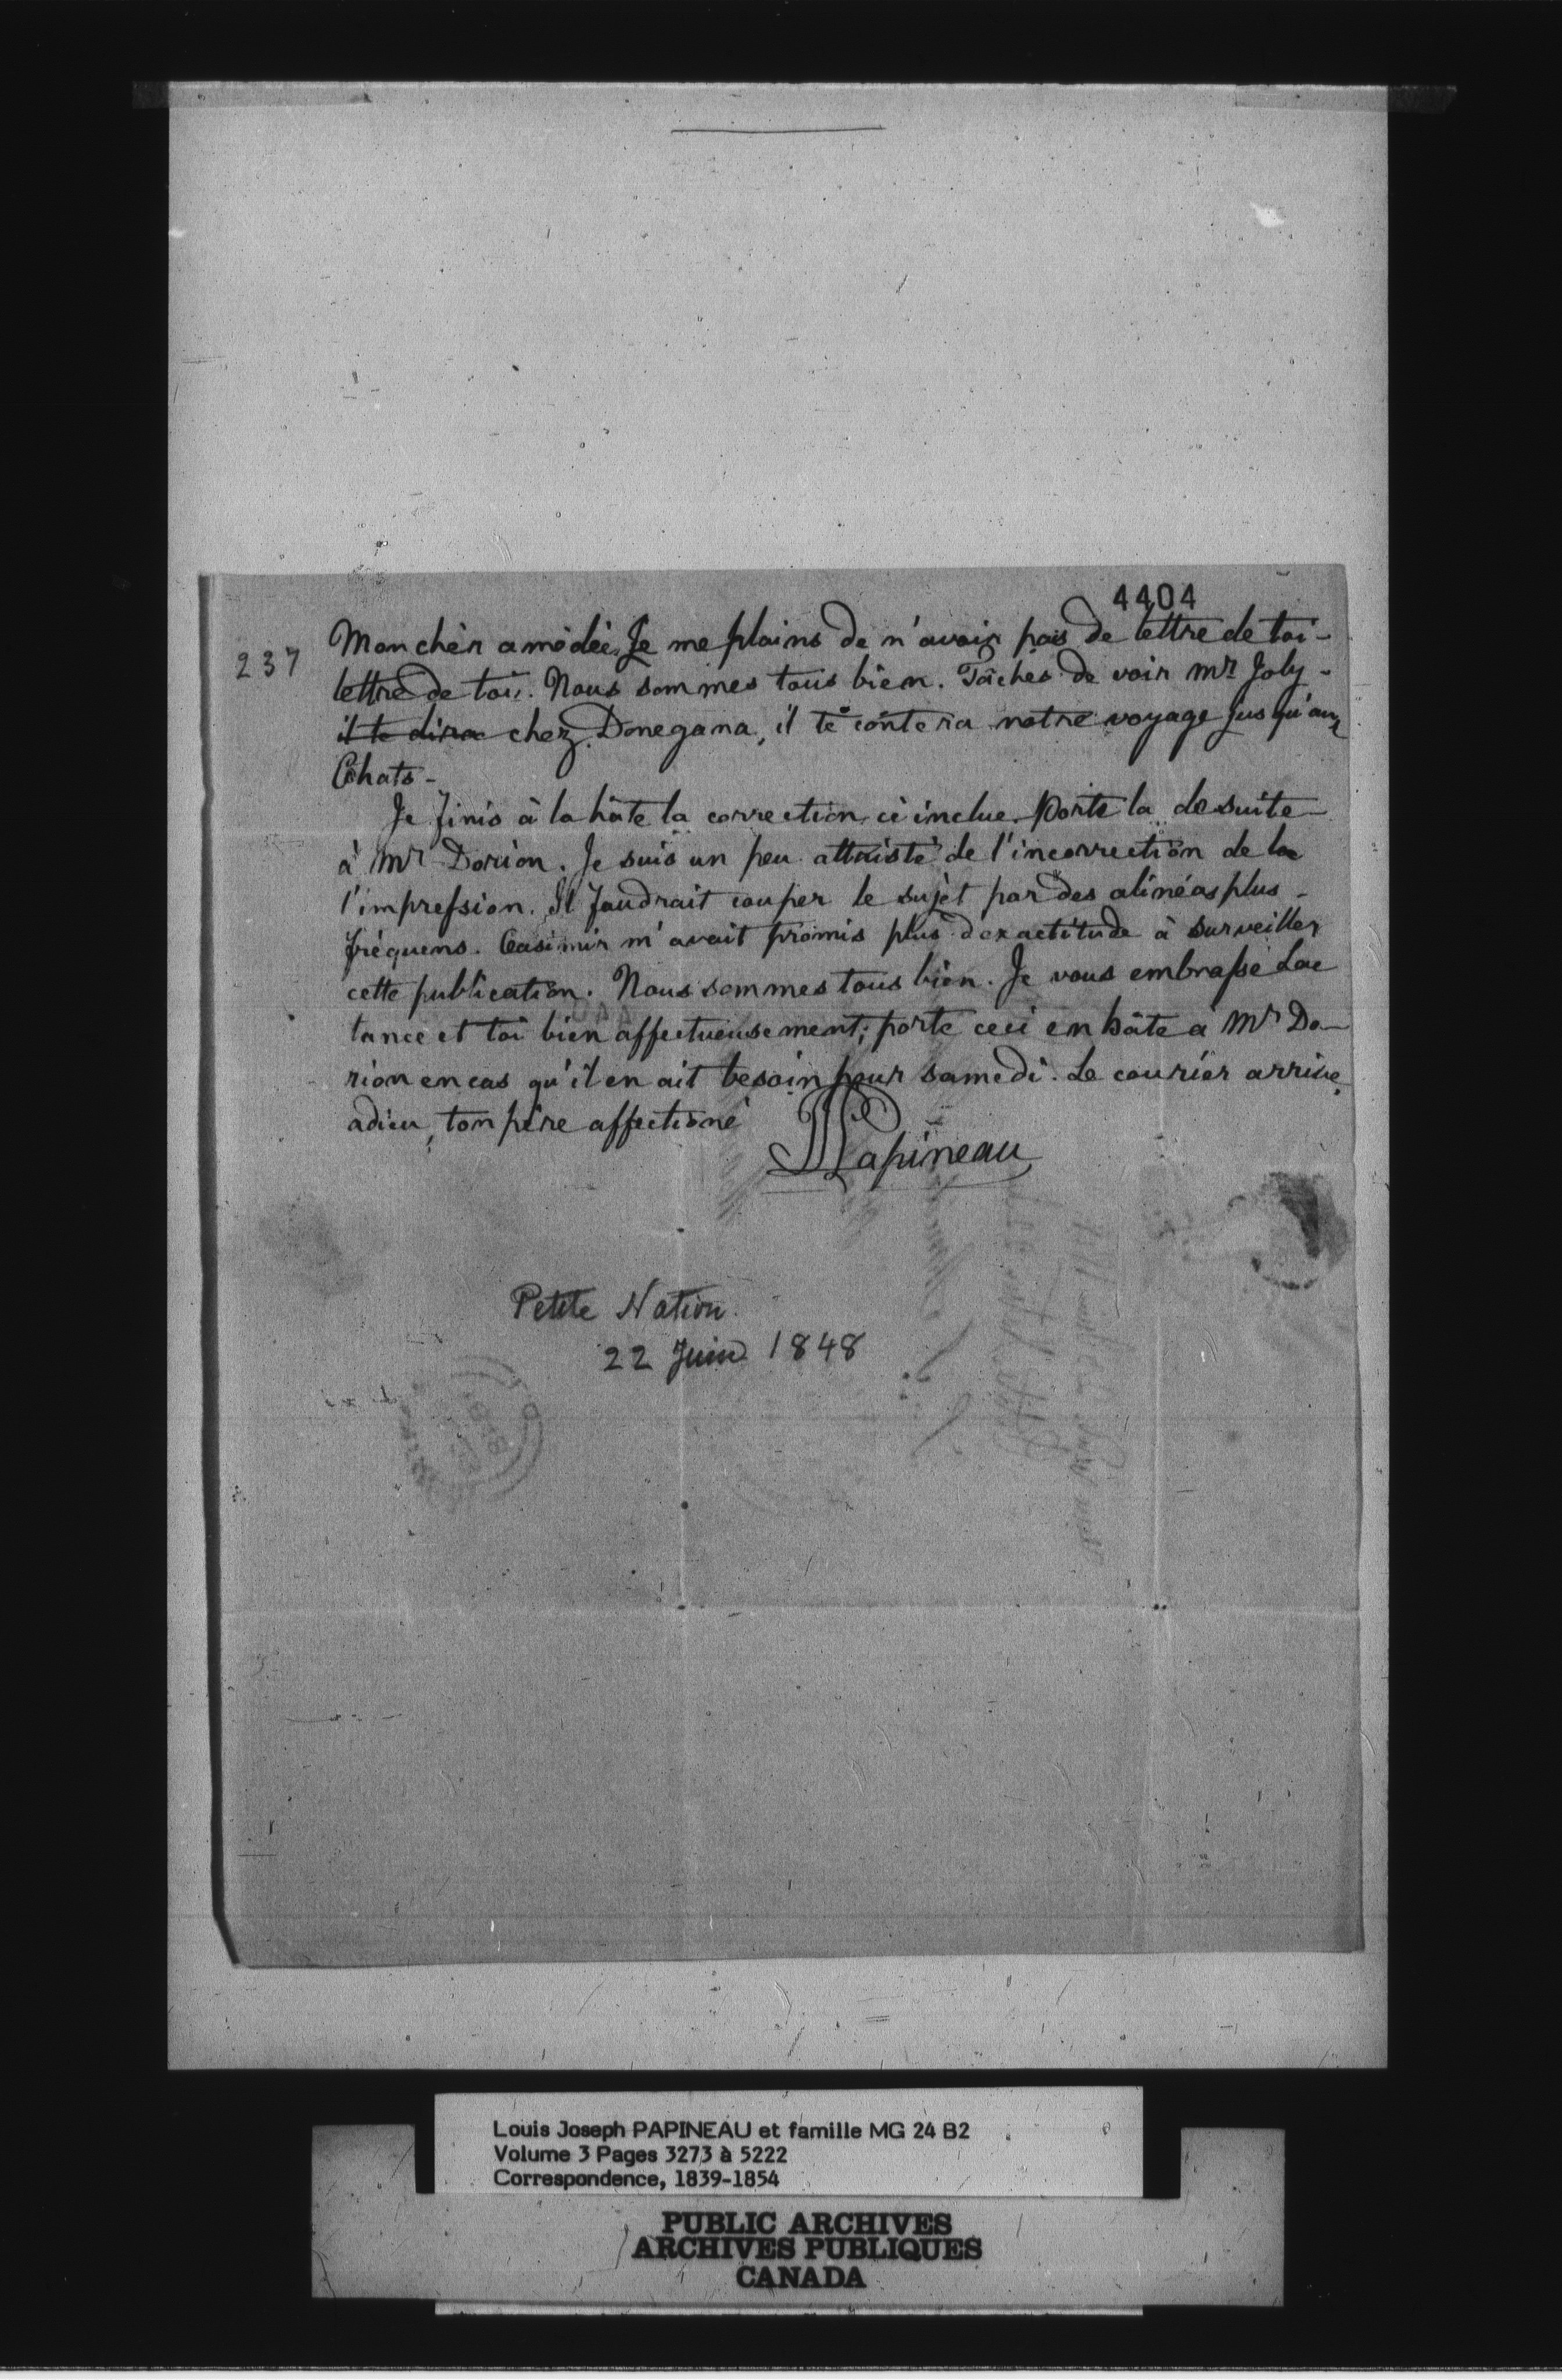 4404
237
Mon chèr amédée, Je me plains de n'avoir pas de lettre de toi -
lettre de toi. Nous sommes tous bien. Tâches de voir Mr Joly -
il te dira chez Donegana, il te contera notre voyage jusqu'aux
Chats -
Je finis à la hâte la correction ci inclue. Porte la de suite
à Mr Dorion. Je suis un peu attristé de l'incorrection de la
l'impression. Il faudrait couper le sujet par des alinéas plus -
fréquens. Casimir m'avait promis plus d'exactitude à surveiller
cette publication. Nous sommes tous bien. Je vous embrasse Lac
tance et toi bien affectueusement; porte ceci en hâte à Mr Do-
rion en cas qu'il en ait besoin pour samedi. Le courier arrive
adieu, ton père affectioné
LJPapineau
Petite Nation.
22 Juin 1848
Louis Joseph PAPINEAU et famille MG 24 B2
Volume 3 Pages 3273 à 5222
Correspondence, 1839-1854
PUBLIC ARCHIVES
ARCHIVES PUBLIQUES
CANADA